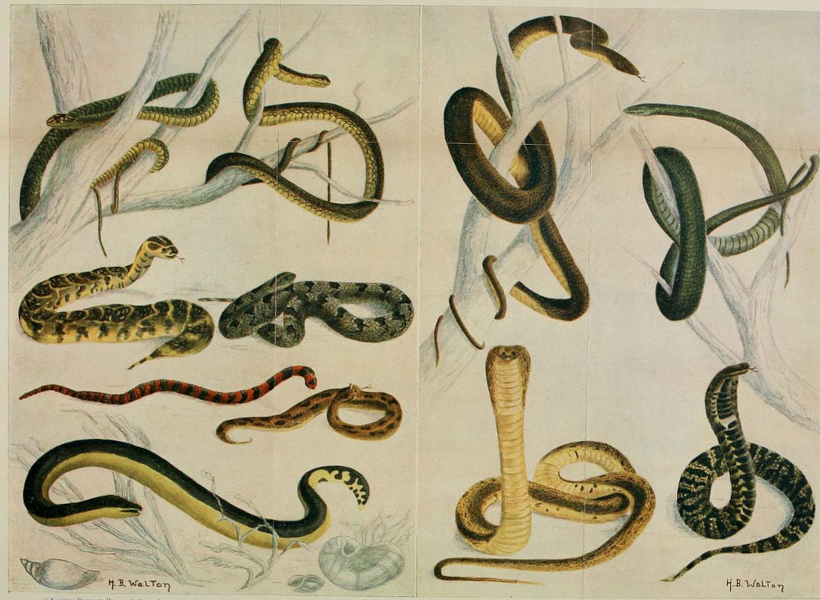 H.B. Walton
H.B. Walton